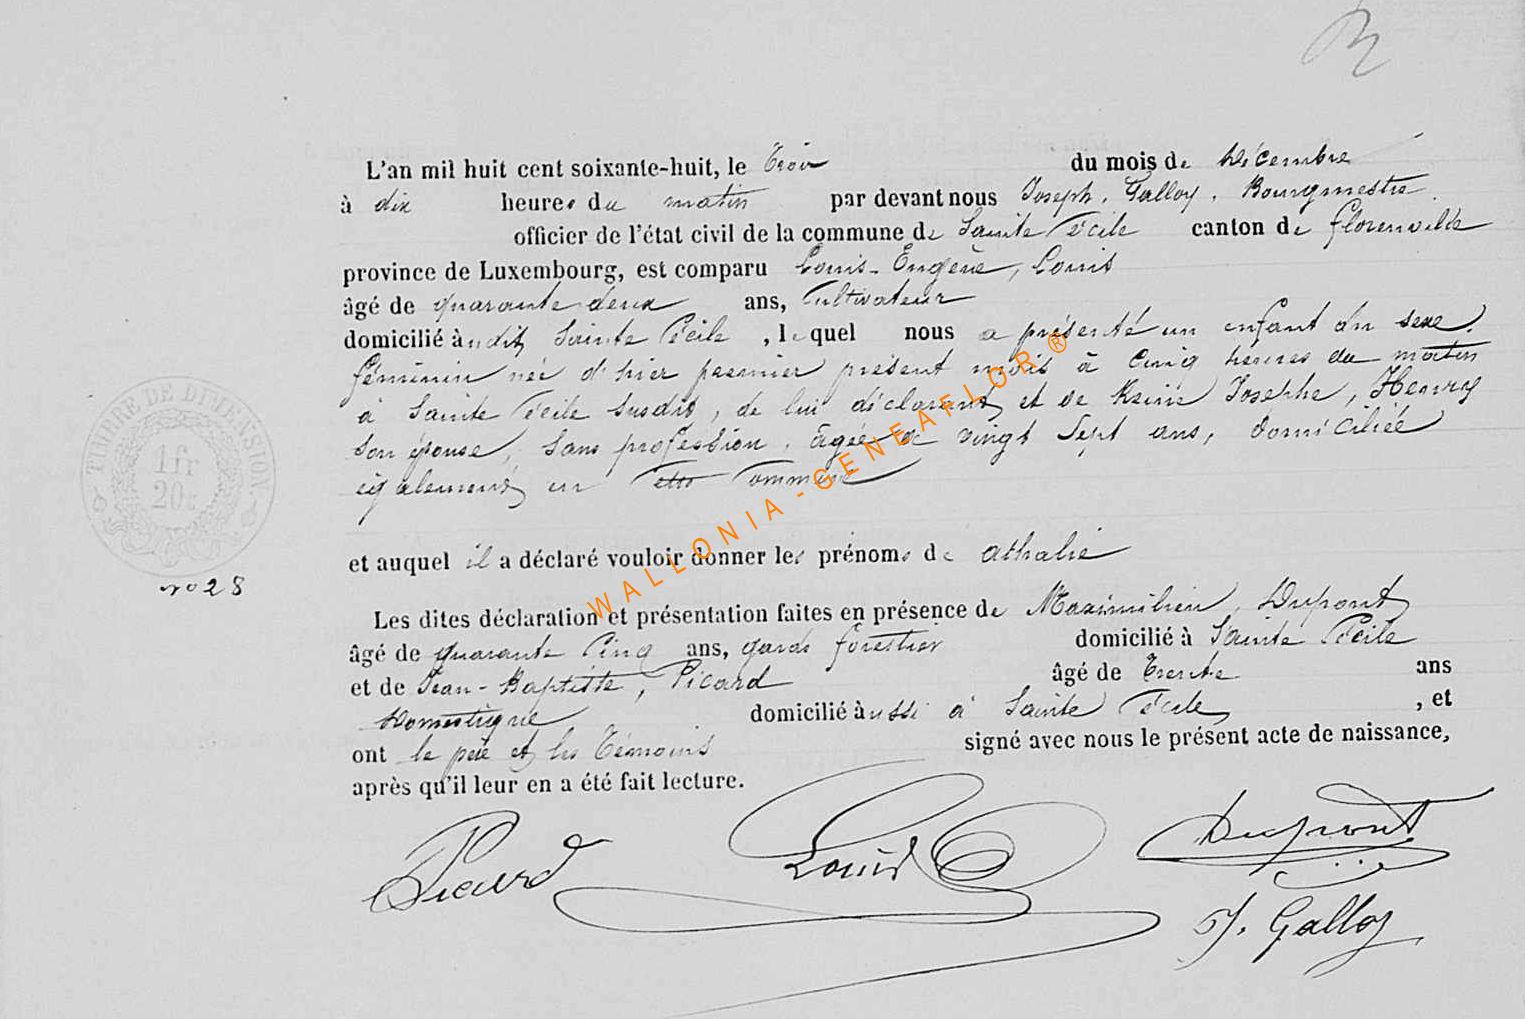 L'an mil huit cent soixante-huit, le Trois du mois de Décembre
à dix heures du matin par devant nous Joseph, Galloy, Bourgmestre
officier de l'état civil de la commune de Sainte Cécile canton de florenville
province de Luxembourg, est comparu Louis-Eugène, Louis
âgé de quarante deux ans, Cultivateur
domicilié audit Sainte Cécile, lequel nous a présenté un enfant du sexe
féminin née d'hier premier présent mois à Cinq heures du matin
à Sainte Cécile susdit, de lui déclarant et de Reine Josephe, Henry
son épouse, sans profession, âgée de vingt sept ans, domiciliée
également en cette Commune
et auquel il a déclaré vouloir donner les prénoms de athalie
no 28
Les dites déclaration et présentation faites en présence de Maximilien, Dupont
âgé de quarante Cinq ans, garde forestier domicilié à Sainte Cécile
et de Jean-Baptiste, Picard âgé de Trente ans
Domestique domicilié aussi à Sainte Cécile, et
ont le père et les Témoins signé avec nous le présent acte de naissance,
après qu'il leur en a été fait lecture.
Picard Louis Dupont
J. Galloy
TIMBRE DE DIMENSION
1fr
20c
WALLONIA-GENEAFLOR®